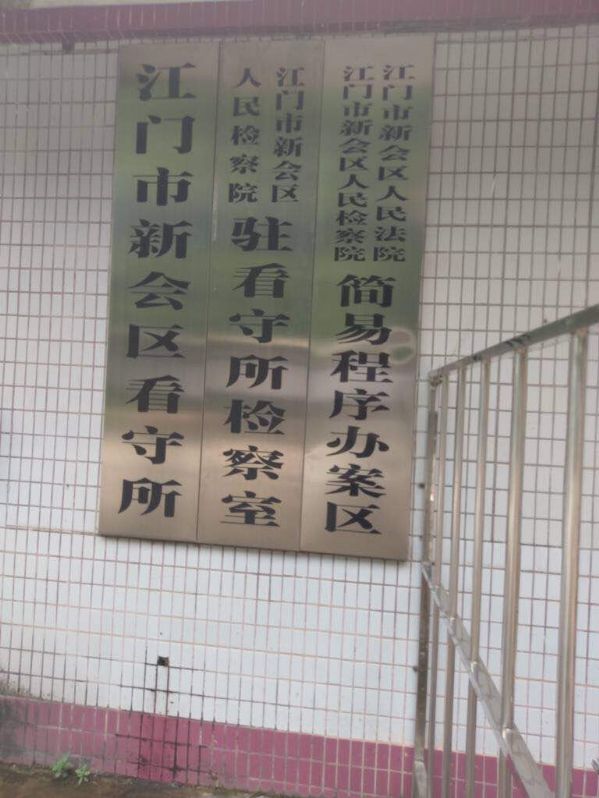 江门市新会区看守所
江门市新会区
人民检察院
驻看守所检察室
江门市新会区人民法院
江门市新会区人民检察院
简易程序办案区